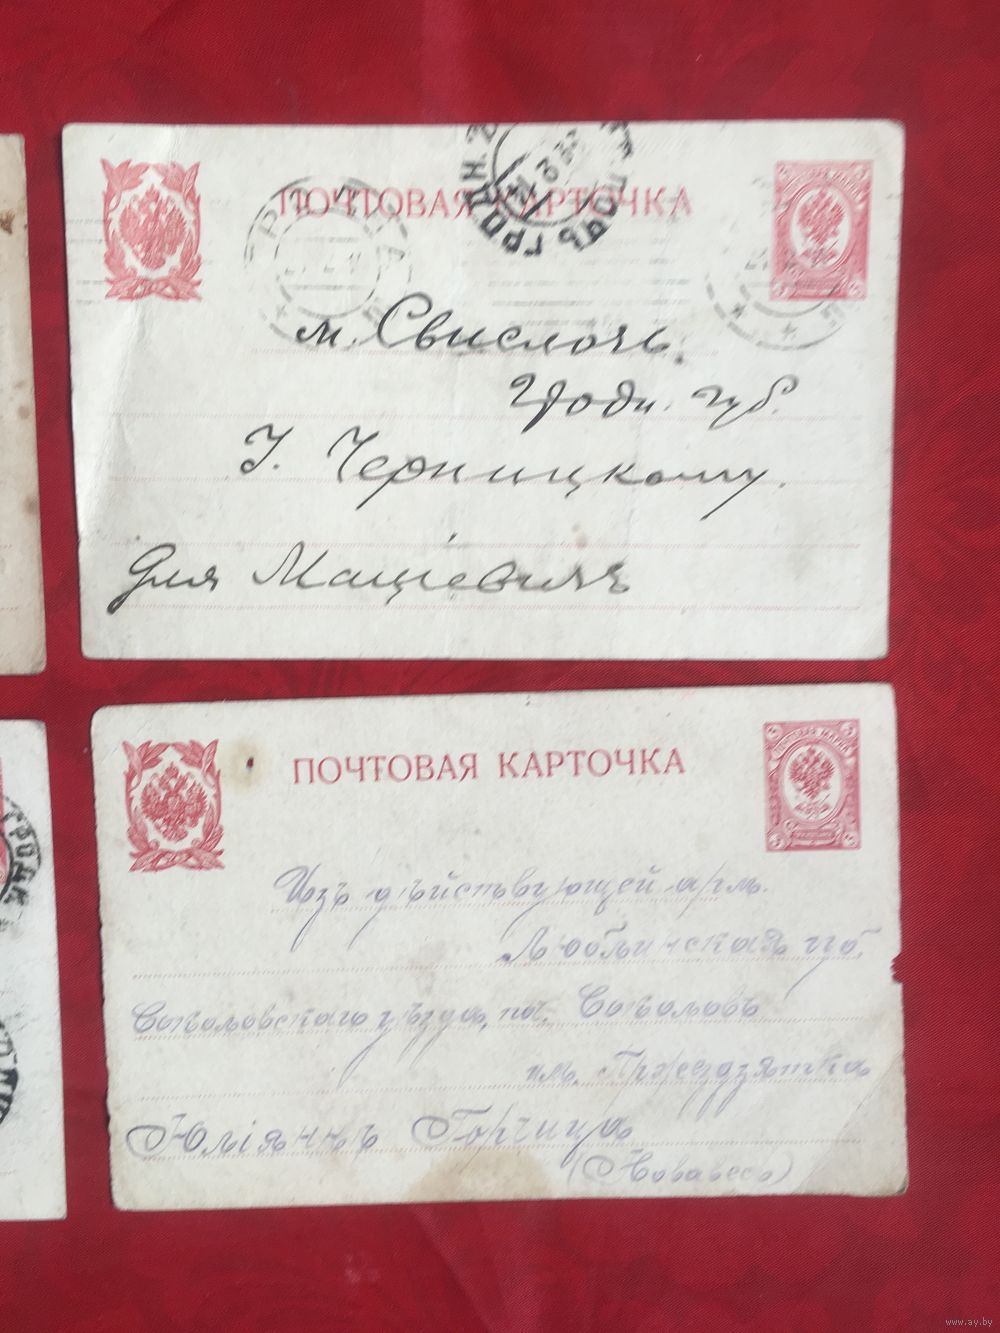 ПОЧТОВАЯ КАРТОЧКА
ГРОДН.
м. Свислочь.
Гродн. губ.
І. Черницкому.
Для Маціевича
ПОЧТОВАЯ КАРТОЧКА
Изъ дѣйствующей арм.
Люблинская губ.
Соколовскаго уѣзда, поч. Соколовъ
Юліяннъ Горчица
(Нававесь)
ГРОДН
www.ay.by